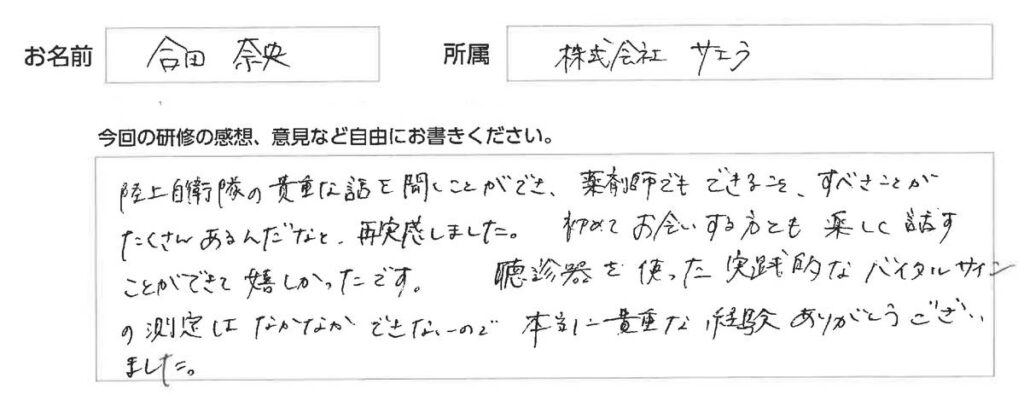 お名前 合田 奈央 所属 株式会社 サエラ
今回の研修の感想、意見など自由にお書きください。
陸上自衛隊の貴重な話を聞くことができ、薬剤師でもできること、すべきことが
たくさんあるんだなと、再実感しました。 初めてお会いする方とも楽しく話す
ことができて嬉しかったです。 聴診器を使った実践的なバイタルサイン
の測定はなかなかできないので 本当に貴重な経験ありがとうござい
ました。